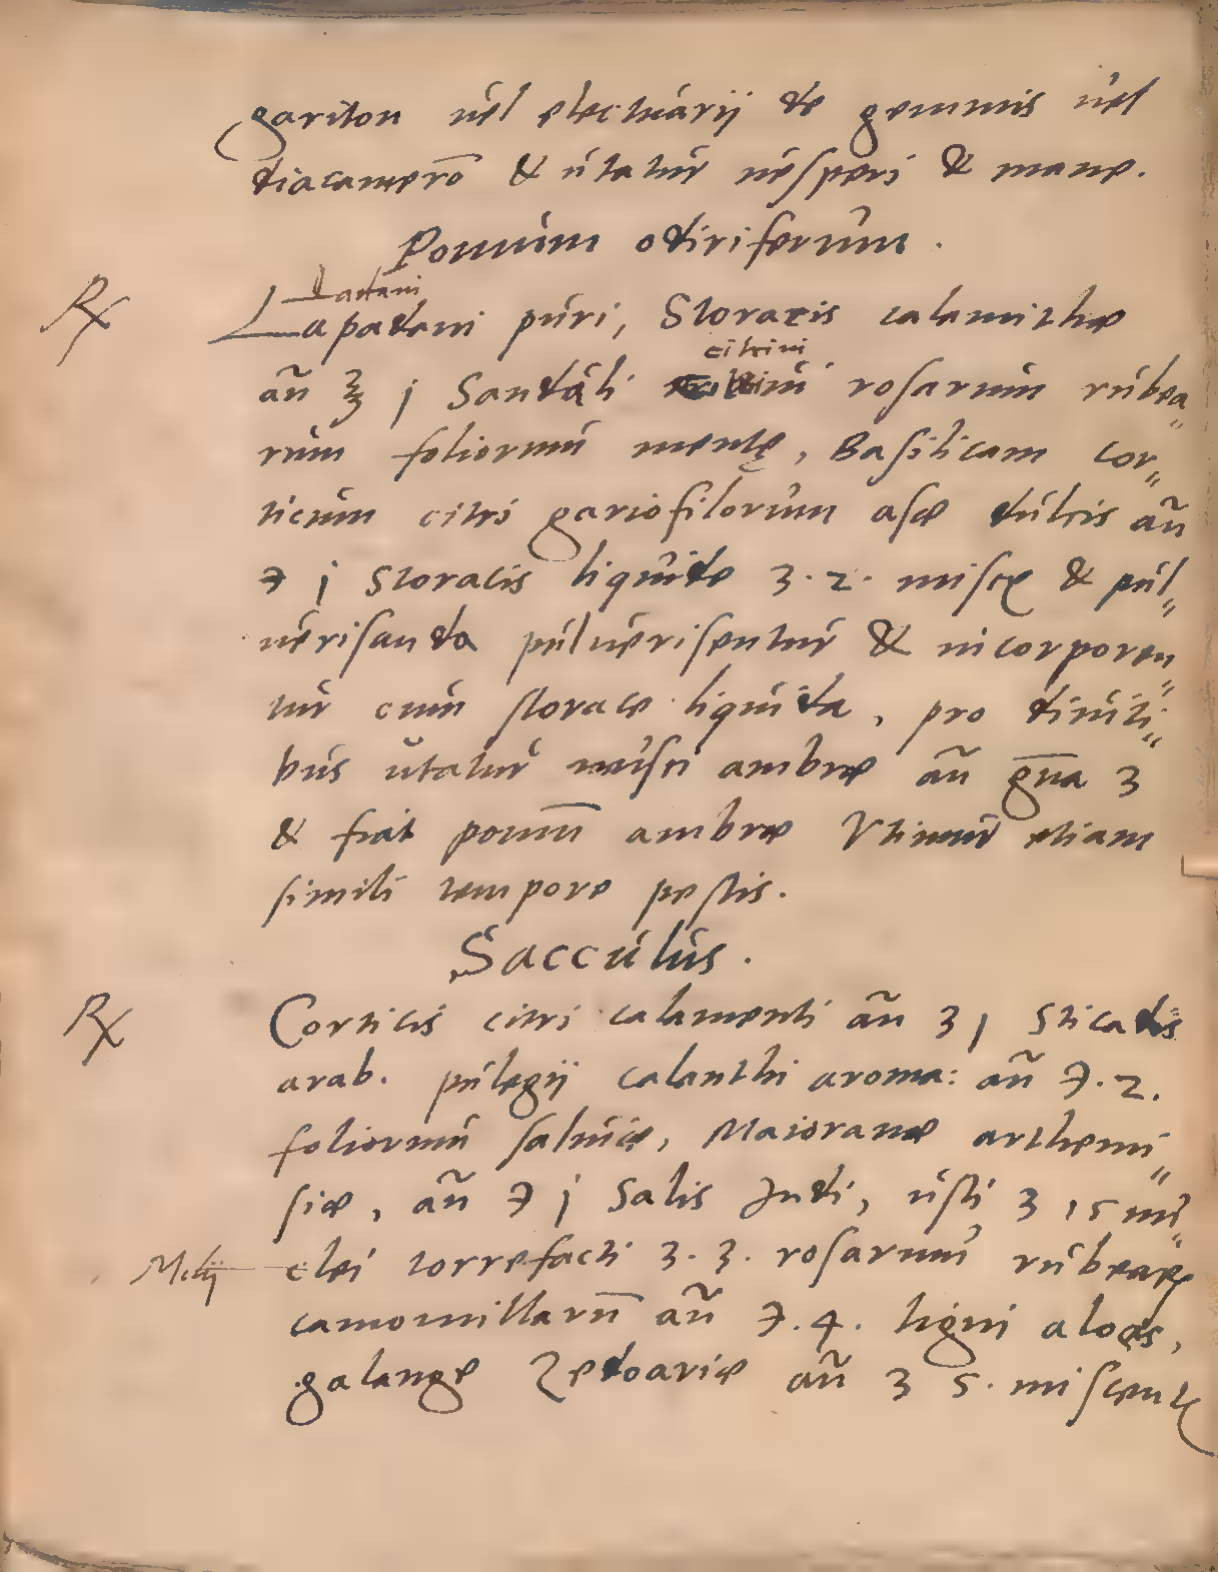 gariton uel electuarij de gemmis uel
diacamerō & utatur uesperi & mane.
Pomum odiriferum.
Ladani
℞ Lapadani puri, Storacis calamithæ
citrini
añ ℥ j Sandali rosarum rubea
rum foliorum mentę, Basilicam cor„
ticum citri gariofilorum asæ dulcis añ
Ʒ j Storacis liquide ʒ. 2. misce & pul„
uerisanda puluerisentur & incorporen„
tur cum storace liquida, pro diuiti„
bus utatur musci ambræ añ gr̄na 3
& fiat pomū ambræ Vtimur etiam
simili tempore pestis.
Sacculus.
℞ Corticis citri calamenti añ ʒ j Sticadis
arab. pulegij calanthi aroma: añ Ʒ. 2.
foliorum saluiæ, Maioranæ arthemi„
siæ, añ Ʒ j Salis Indi, usti ʒ 15 mi„
Milij clei torrefacti ʒ. 3. rosarum rubeaꝝ
camomillarū añ Ʒ. 4. ligni aloes,
galange Zedoariæ añ ʒ 5. miscent